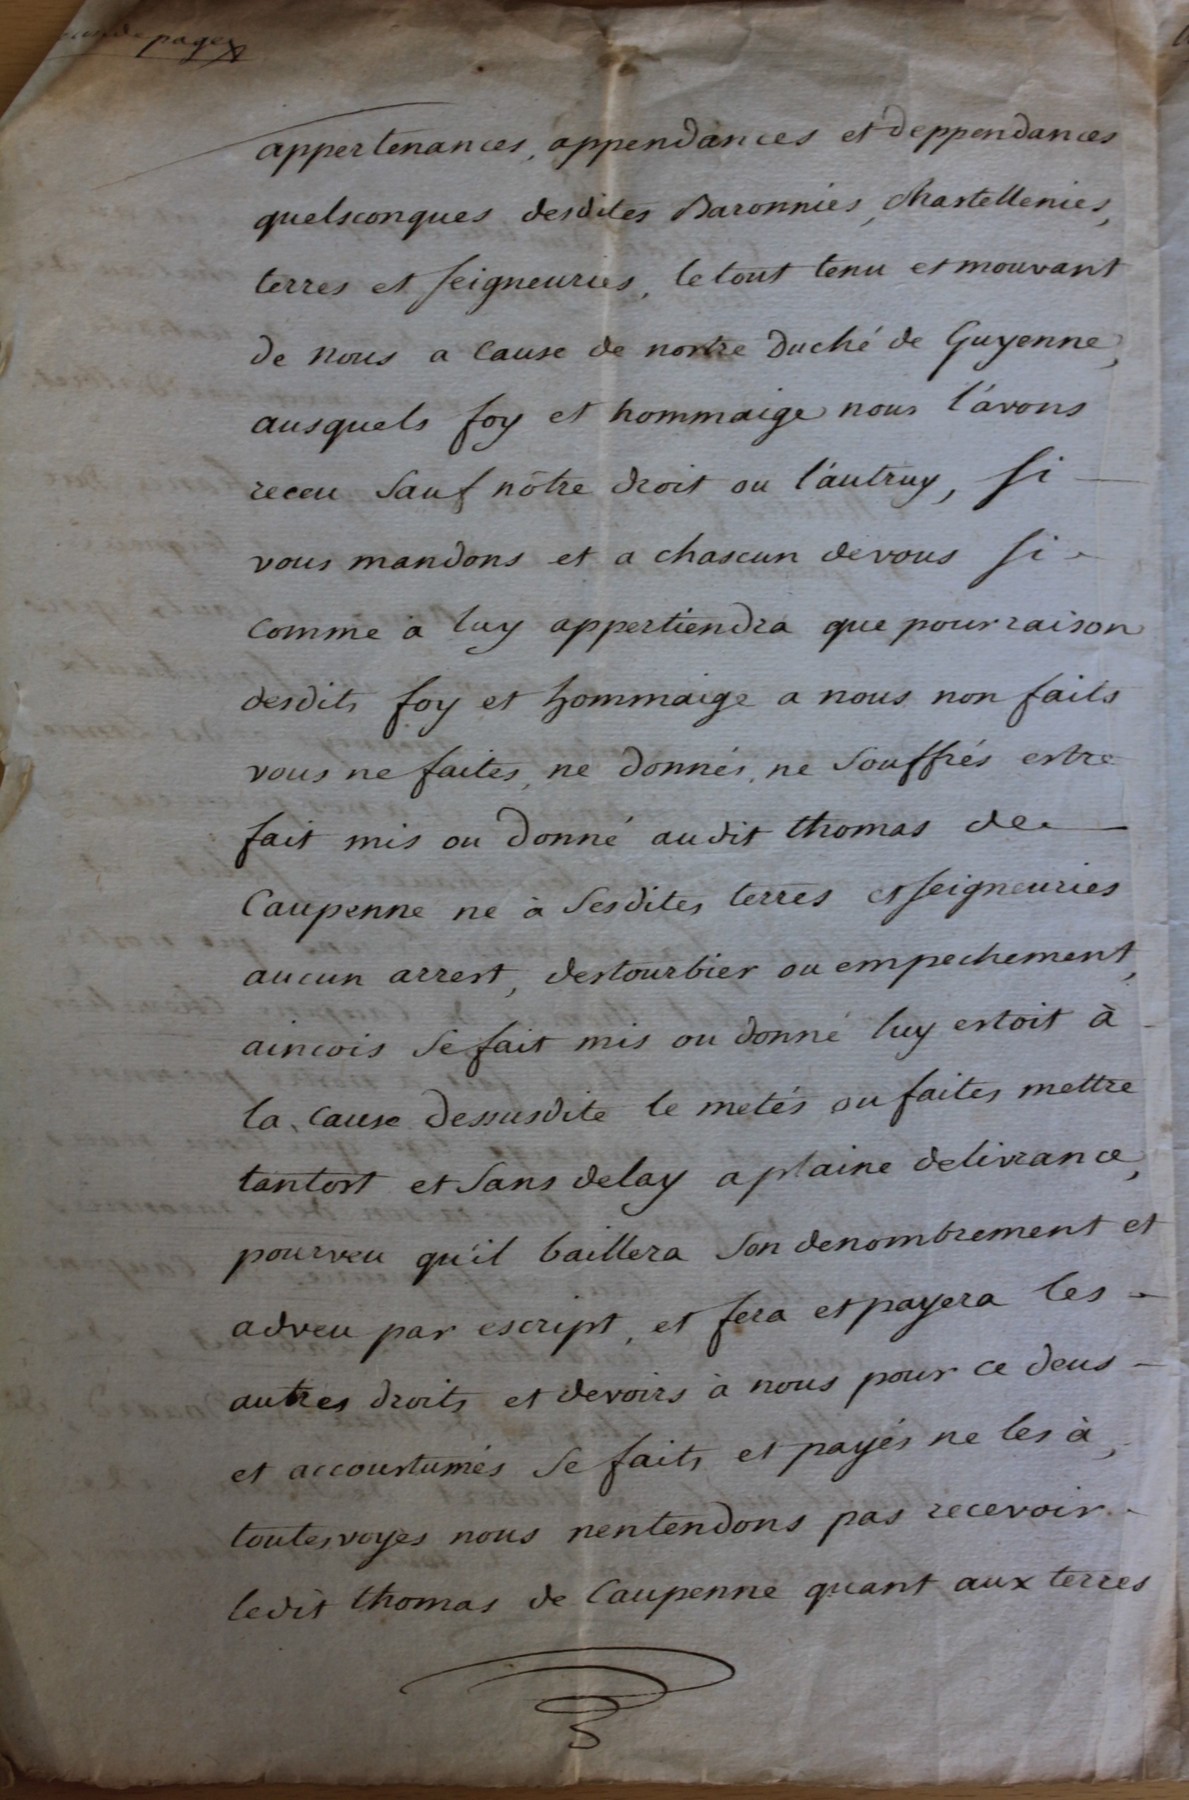 page
appertenances, appendances et deppendances
quelsconques desdites Baronnies, chastellenies,
terres et seigneuries, le tout tenu et mouvant
de nous a cause de nostre Duché de Guyenne,
ausquels foy et hommaige nous l'avons
receu sauf nôtre droit ou l'autruy, si
vous mandons et a chascun de vous si
comme a luy appertiendra que pour raison
desdits foy et hommaige a nous non faits
vous ne faites, ne donnés, ne souffrés estre
fait mis ou donné audit thomas de
Caupenne ne à sesdites terres et seigneuries
aucun arrest, destourbier ou empechement,
aincois se fait mis ou donné luy estoit à
la cause dessusdite le metés ou faites mettre
tantost et sans delay a plaine delivrance,
pourveu qu'il baillera son denombrement et
adveu par escript, et fera et payera les
autres droits et devoirs à nous pour ce deus
et accoustumés se faits et payés ne les à,
toutesvoyes nous nentendons pas recevoir
ledit thomas de Caupenne quant aux terres